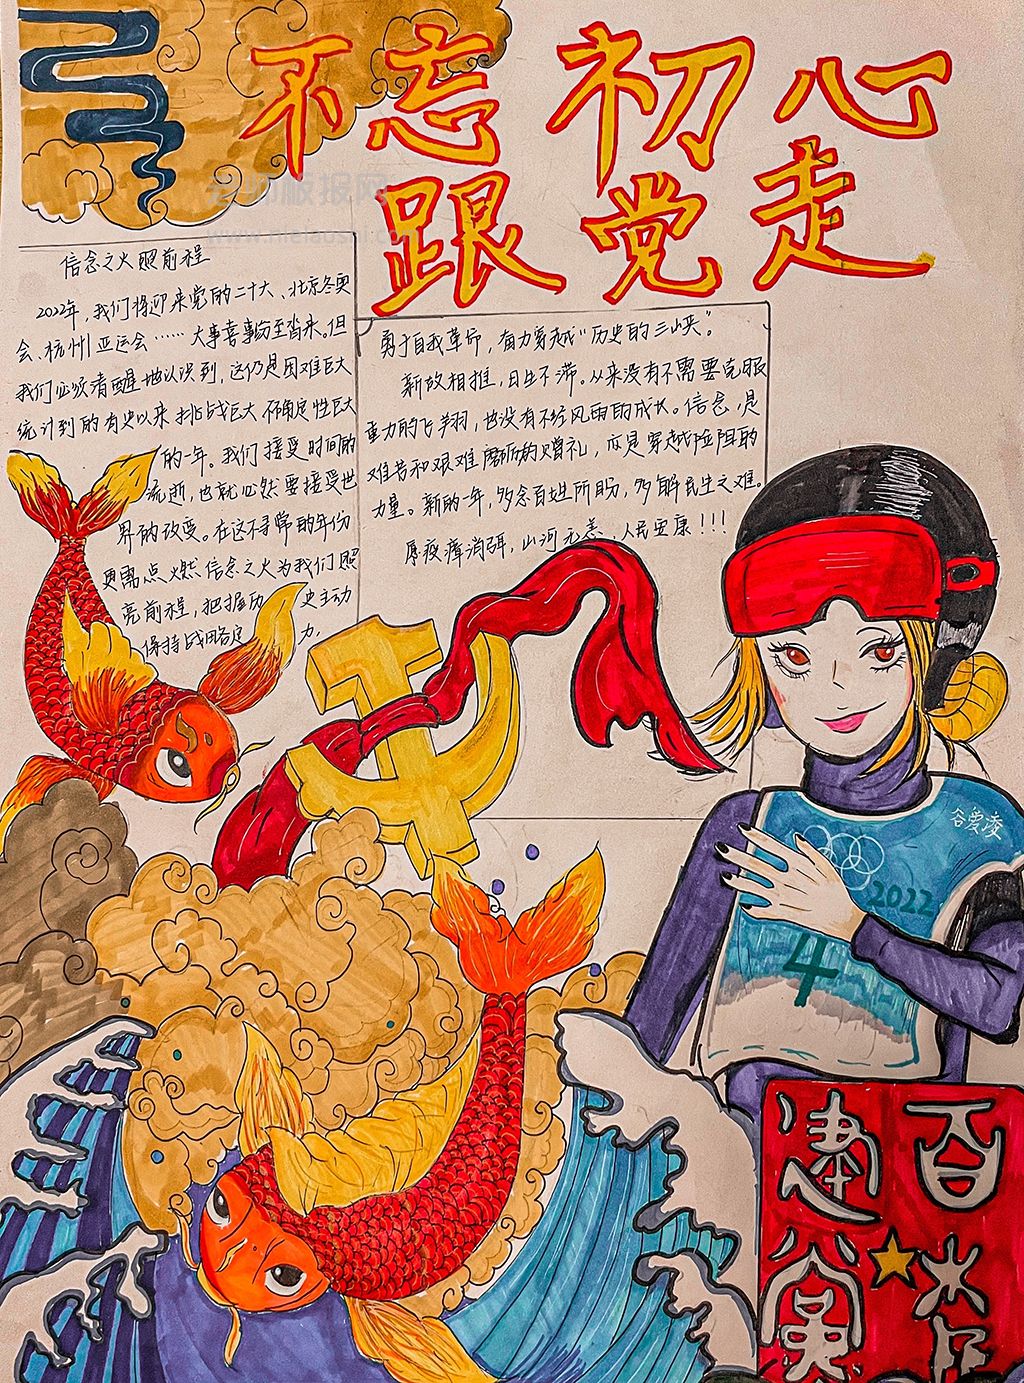 不忘初心
跟党走
老师板报网
信念之火照前程
2022年，我们将迎来党的二十大、北京冬奥
会、杭州亚运会……大事喜事纷至沓来。但
我们必须清醒地认识到，这仍是困难巨大
统计到的有史以来挑战巨大不确定性巨大
的一年。我们接受时间的
流逝，也就必然要接受世
界的改变。在这不寻常的年份
更需点燃信念之火为我们照
亮前程，把握历史主动
保持战略定力。
勇于自我革命，奋力穿越“历史的三峡”。
新故相推，日生不滞。从来没有不需要克服
重力的飞翔，也没有不经风雨的成长。信念，是
难苦和艰难磨砺的赠礼，亦是穿越险阻的
力量。新的一年，多念百姓所盼，多解民生之难。
愿疫瘴消弭，山河无恙、人民安康！！！
谷爱凌
2022
4
百年
建党